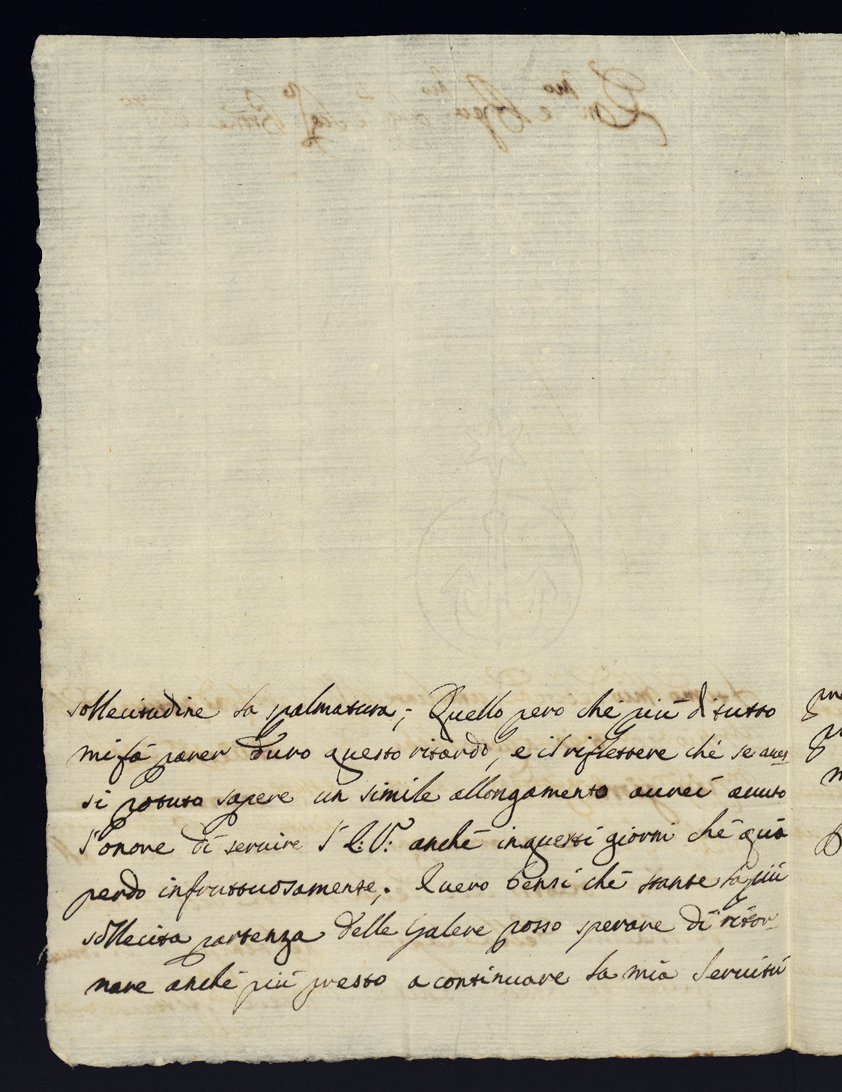 sollecitudine la spalmatura; Quello pero che più di tutto
mi fà parer duro questo ritardo, e il riflettere che se aves
si potuto sapere un simile allongamento aurei auuto
l'onore di seruire l'E: V: anche in questi giorni che quà
perdo infruttuosamente; È uero bensi che stante la più
sollecita partenza delle Galere posso sperare di ritor-
nare anche più presto a continuare la mia Seruitù